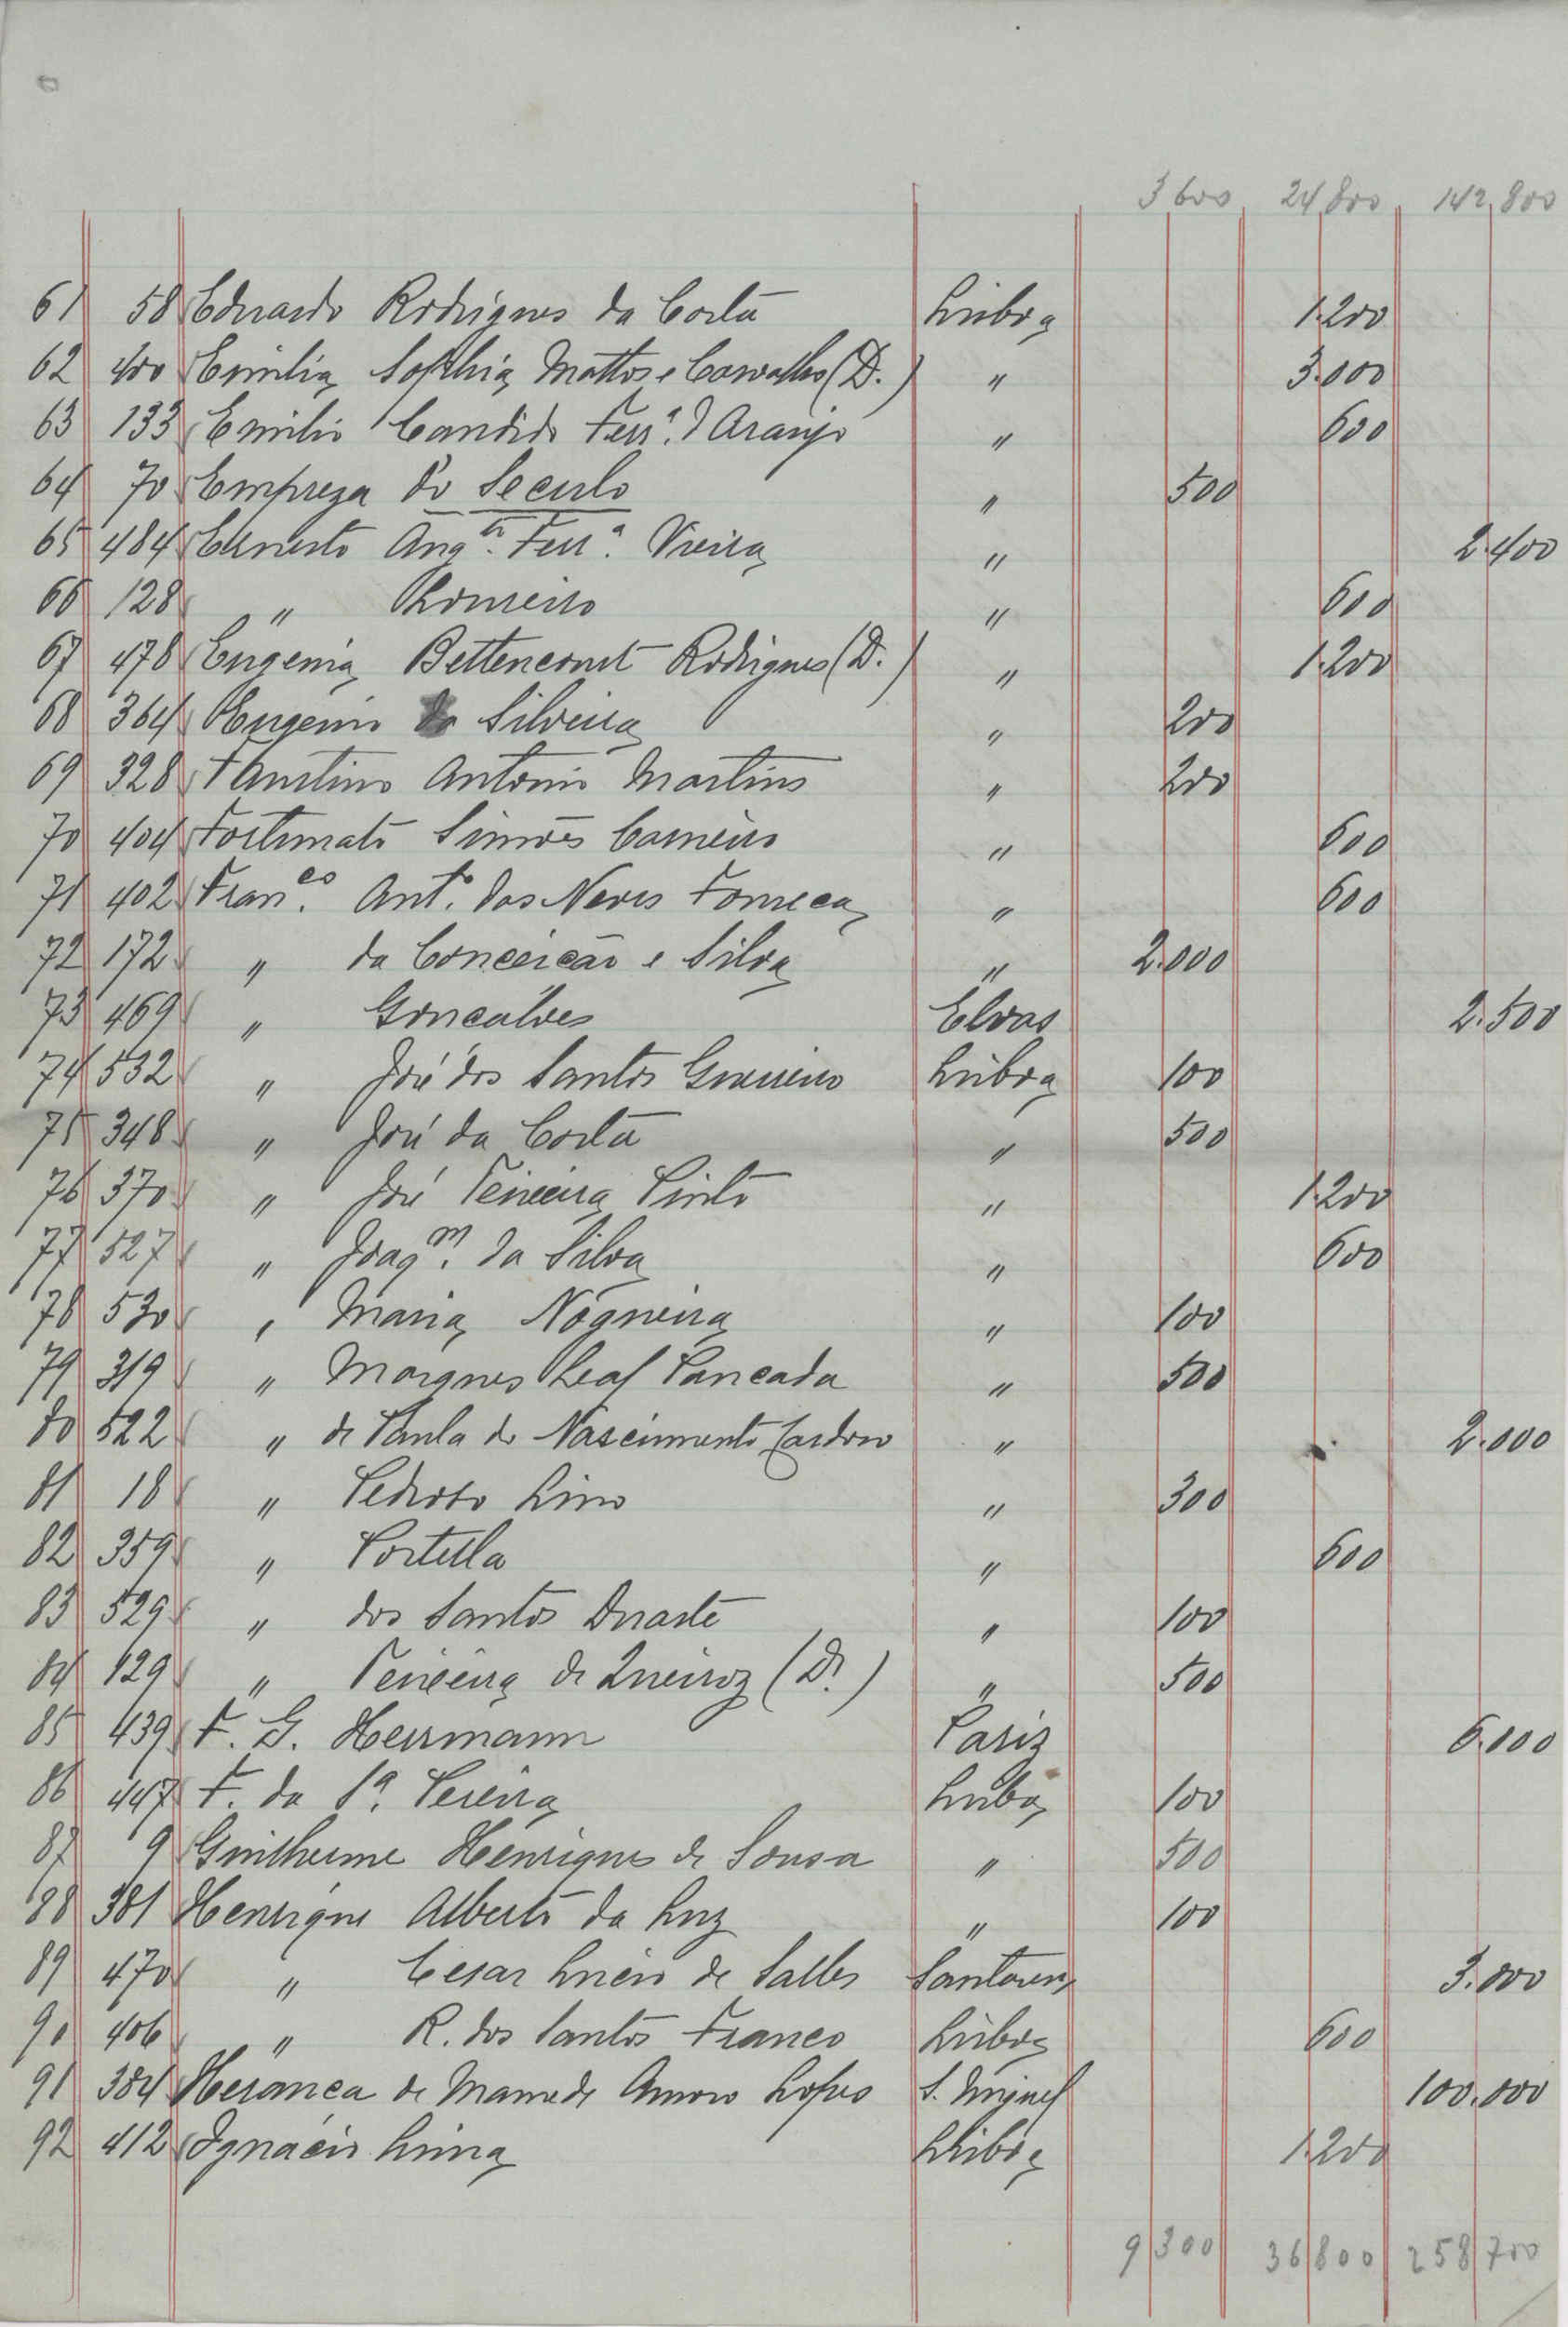 3 600 24 800 142,800
61 58 Eduardo Rodrigues da Costa Lisboa 1.200
62 400 Emilia Sophia Mattos e Carvalho (D.) " 3.000
63 133 Emilio Candido Ferrª. d'Araujo " 600
64 70 Empreza d'o Seculo " 500
65 484 Ernesto Augto. Ferrª. Vieira " 2.400
66 128 " Loureiro " 600
67 478 Eugenia Bettencourt Rodrigues (D.) " 1.200
68 364 Eugenio da Silveira " 200
69 328 Faustino Antonio Martins " 200
70 404 Fortunato Simões Carneiro " 600
71 402 Franco. Anto. das Neves Fonseca " 600
72 172 " da Conceicão e Silva " 2.000
73 469 " Goncalves Elvas 2.500
74 532 " José dos Santos Guerreiro Lisboa 100
75 348 " José da Costa " 500
76 370 " José Teixeira Pinto " 1.200
77 527 " Joaqm. da Silva " 600
78 530 " Maria Nogueira " 100
79 319 " Marques Leal Pancada " 500
80 522 " de Paula do Nascimento Cardoso " 2.000
81 18 " Pedroso Lima " 300
82 359 " Portella " 600
83 529 " dos Santos Duarte " 100
84 129 " Teixeira de Queiroz (Dr.) " 500
85 439 F. G. Herrmann Pariz 6.000
86 447 F. da Sª. Pereira Lisboa 100
87 9 Guilherme Henriques de Sousa " 500
88 381 Henrique Alberto da Luz " 100
89 470 " Cesar Lucio de Salles Santarem 3.000
90 406 " R. dos Santos Franco Lisboa 600
91 384 Heranca de Mamede Amoro Lopes S. Miguel 100.000
92 412 Ignacio Lima Lisboa 1.200
9 300 36 800 258 700